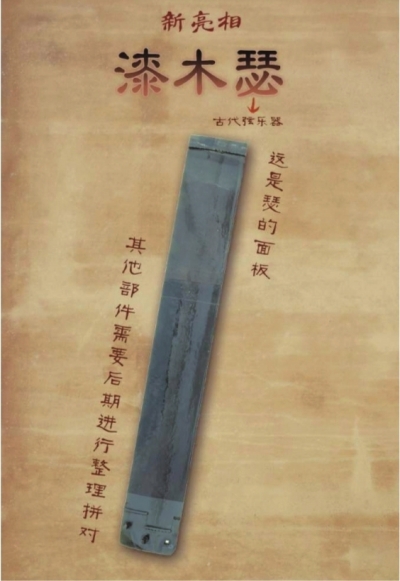 新亮相
漆木瑟
古代弦乐器
这是瑟的面板
其他部件需要后期进行整理拼对